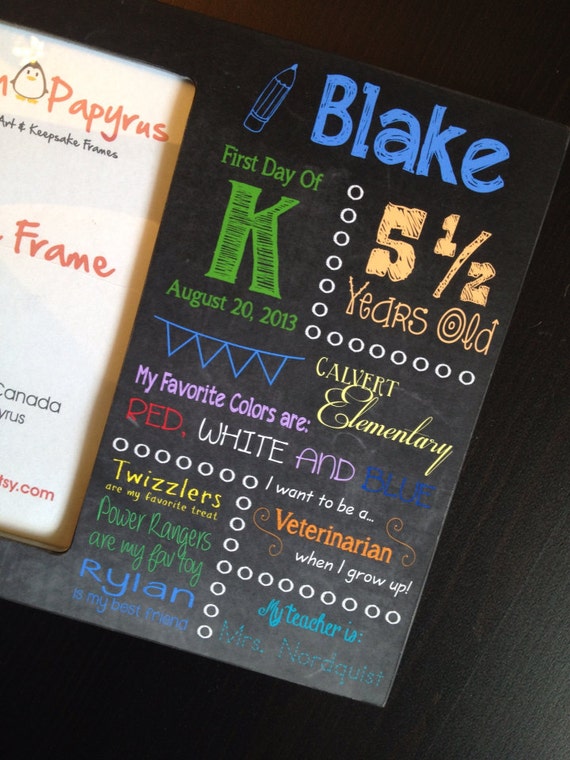 Papyrus
Art & Keepsake Frames
Frame
Canada
tsy.com
Blake
First Day Of
K
August 20, 2013
5 1/2
Years Old
Calvert
Elementary
My Favorite Colors are:
RED, WHITE AND BLUE
Twizzlers
are my favorite treat
Power Rangers
are my fav toy
Rylan
is my best friend
I want to be a...
Veterinarian
when I grow up!
My teacher is:
Mrs. Nordquist